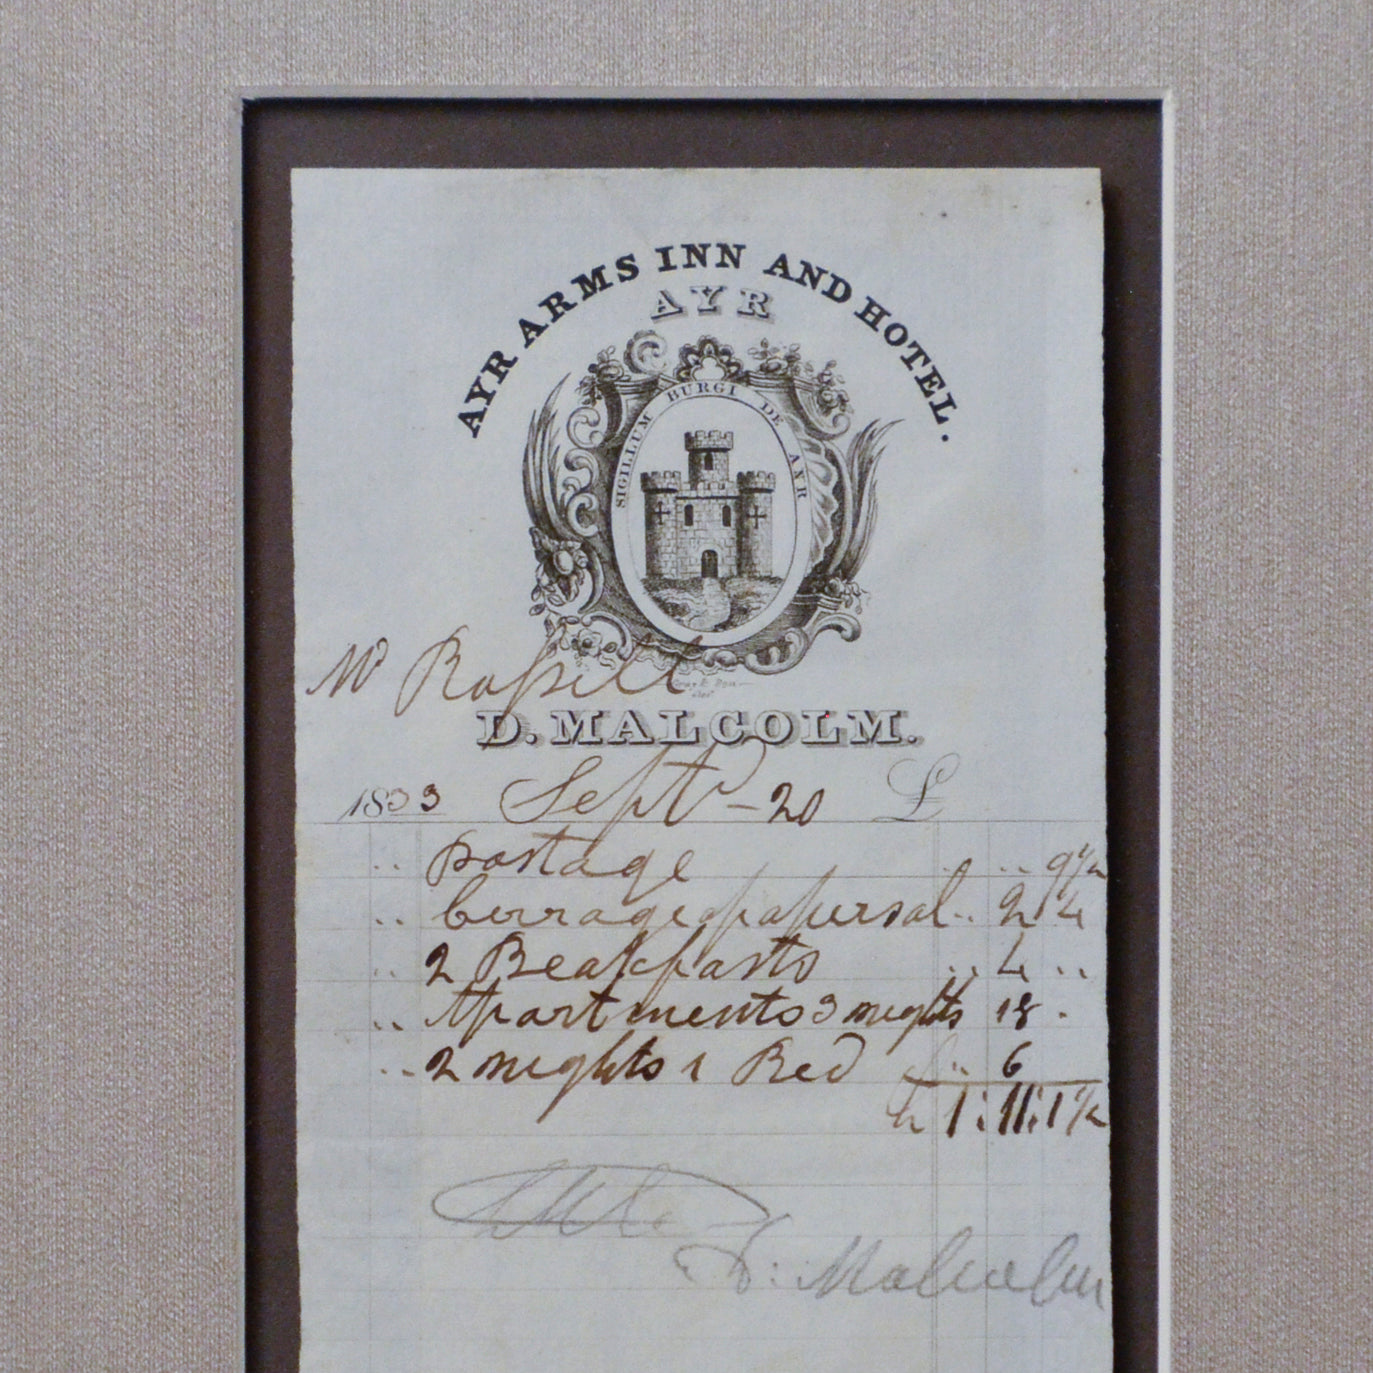 AYR ARMS INN AND HOTEL.
AYR
SIGILLUM BURGI DE AYR
Mr Russell
D. MALCOLM.
1833 Septr - 20 £
.. postage .. .. 9½
.. 2 4
.. 2 Breakfasts .. 4 ..
.. Apartments 3 nights 18 .
.. 2 nights 1 Bed .. 6
1:11:1½
D: Malcolm